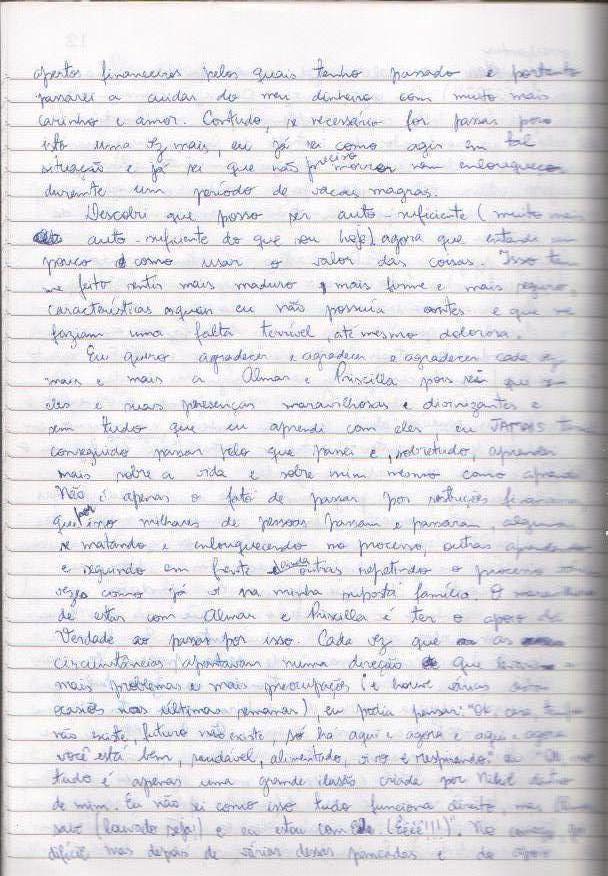 apertos financeiros pelos quais tenho passado e portanto
passarei a cuidar do meu dinheiro com muito mais
carinho e amor. Contudo, se necessário for passar por
isto uma vez mais, eu já sei como agir em tal
situação e já sei que não preciso morrer nem enlouquecer
durante um período de vacas magras.
Descobri que posso ser auto-suficiente (muito mais
auto-suficiente do que sou hoje) agora que entendi um
pouco como usar o valor das coisas. Isso tem
me feito sentir mais maduro, mais firme e mais seguro,
características as quais eu não possuía antes e que me
faziam uma falta terrível, até mesmo dolorosa.
Eu quero agradecer e agradecer e agradecer cada vez
mais e mais a Almar e Priscilla pois sei que sem
eles e suas presenças maravilhosas e divinizantes e
sem tudo que eu aprendi com eles, eu JAMAIS teria
conseguido passar pelo que passei e, sobretudo, aprender
mais sobre a vida e sobre mim mesmo como aprendi.
Não é apenas o fato de passar por restrições
que por isso milhares de pessoas passam e passaram, algumas
se matando e enlouquecendo no processo, outras
e seguindo em frente e ainda outras repetindo o processo
vezes como já vi na minha suposta família. O
de estar com Almar e Priscilla é ter o apoio da
Verdade ao passar por isso. Cada vez que as
circunstâncias apontavam numa direção que
mais problemas e mais preocupações (e houve várias
ocasiões nas últimas semanas), eu podia pensar: "Ok,
não existe, futuro não existe, só há aqui e agora e aqui e agora
você está bem, saudável, alimentado, vivo e respirando" ou
tudo é apenas uma grande ilusão criada por dentro
de mim. Eu não sei como isso tudo funciona direito, mas
sabe (louvado seja!) e eu estou com ele (Êêêê!!!)". No
difícil mas depois de várias dessas pancadas e do apoio